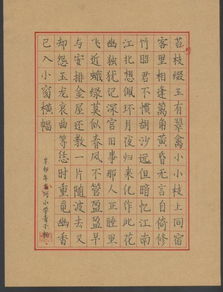 苔枝綴玉有翠禽小小枝上同宿
客里相逢籬角黃昏無言自倚修
竹昭君不慣胡沙遠但暗憶江南
江北想佩環月夜歸來化作此花
幽獨猶記深宮舊事那人正睡裡
飛近蛾綠莫似春風不管盈盈早
與安排金屋還教一片隨波去又
却怨玉龍哀曲等恁時重覓幽香
已入小窗橫幅